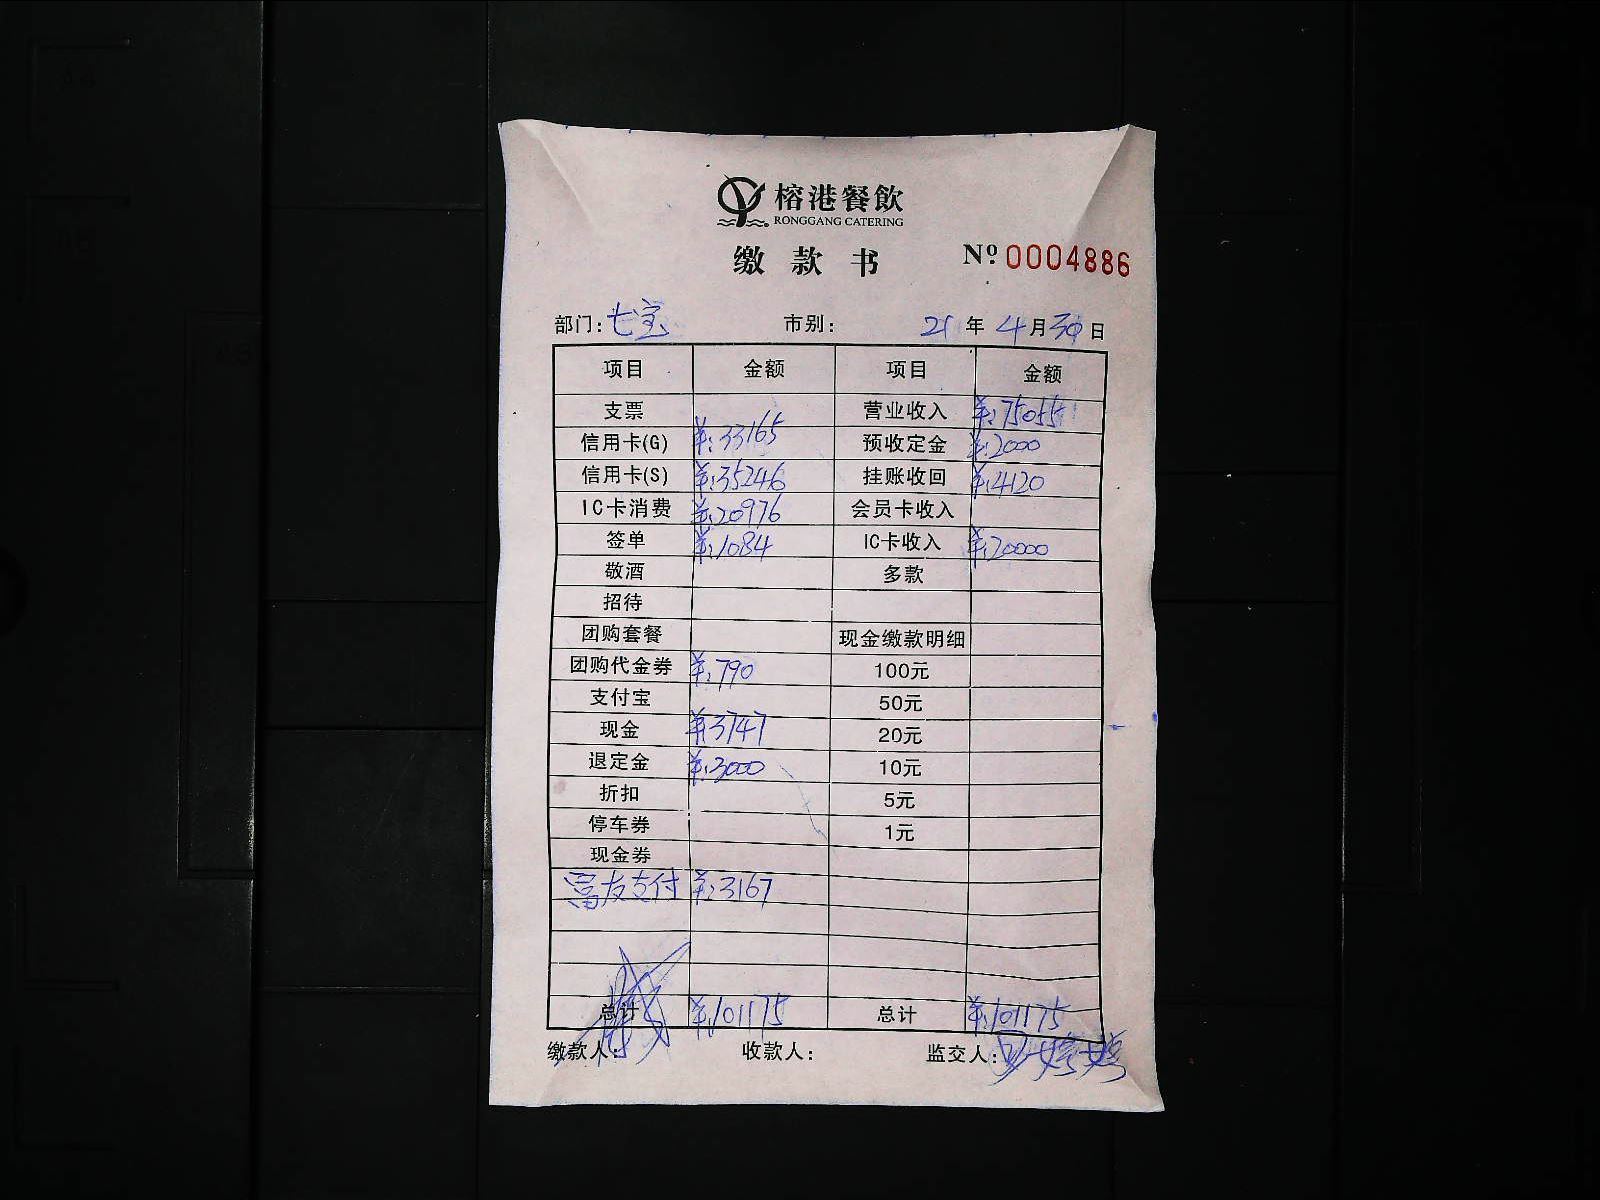 榕港餐飲
RONGGANG CATERING
缴款书 Nº 0004886
部门: 七宝 市别: 21年4月30日
项目 金额 项目 金额
支票 营业收入 ¥:75055
信用卡(G) ¥:33165 预收定金 ¥:2000
信用卡(S) ¥:35246 挂账收回 ¥:4120
IC卡消费 ¥:20976 会员卡收入
签单 ¥:1084 IC卡收入 ¥:20000
敬酒 多款
招待
团购套餐 现金缴款明细
团购代金券 ¥:790 100元
支付宝 50元
现金 ¥:3747 20元
退定金 ¥:3000 10元
折扣 5元
停车券 1元
现金券
富友支付 ¥:3167
总计 ¥:101175 总计 ¥:101175
缴款人: 收款人: 监交人: